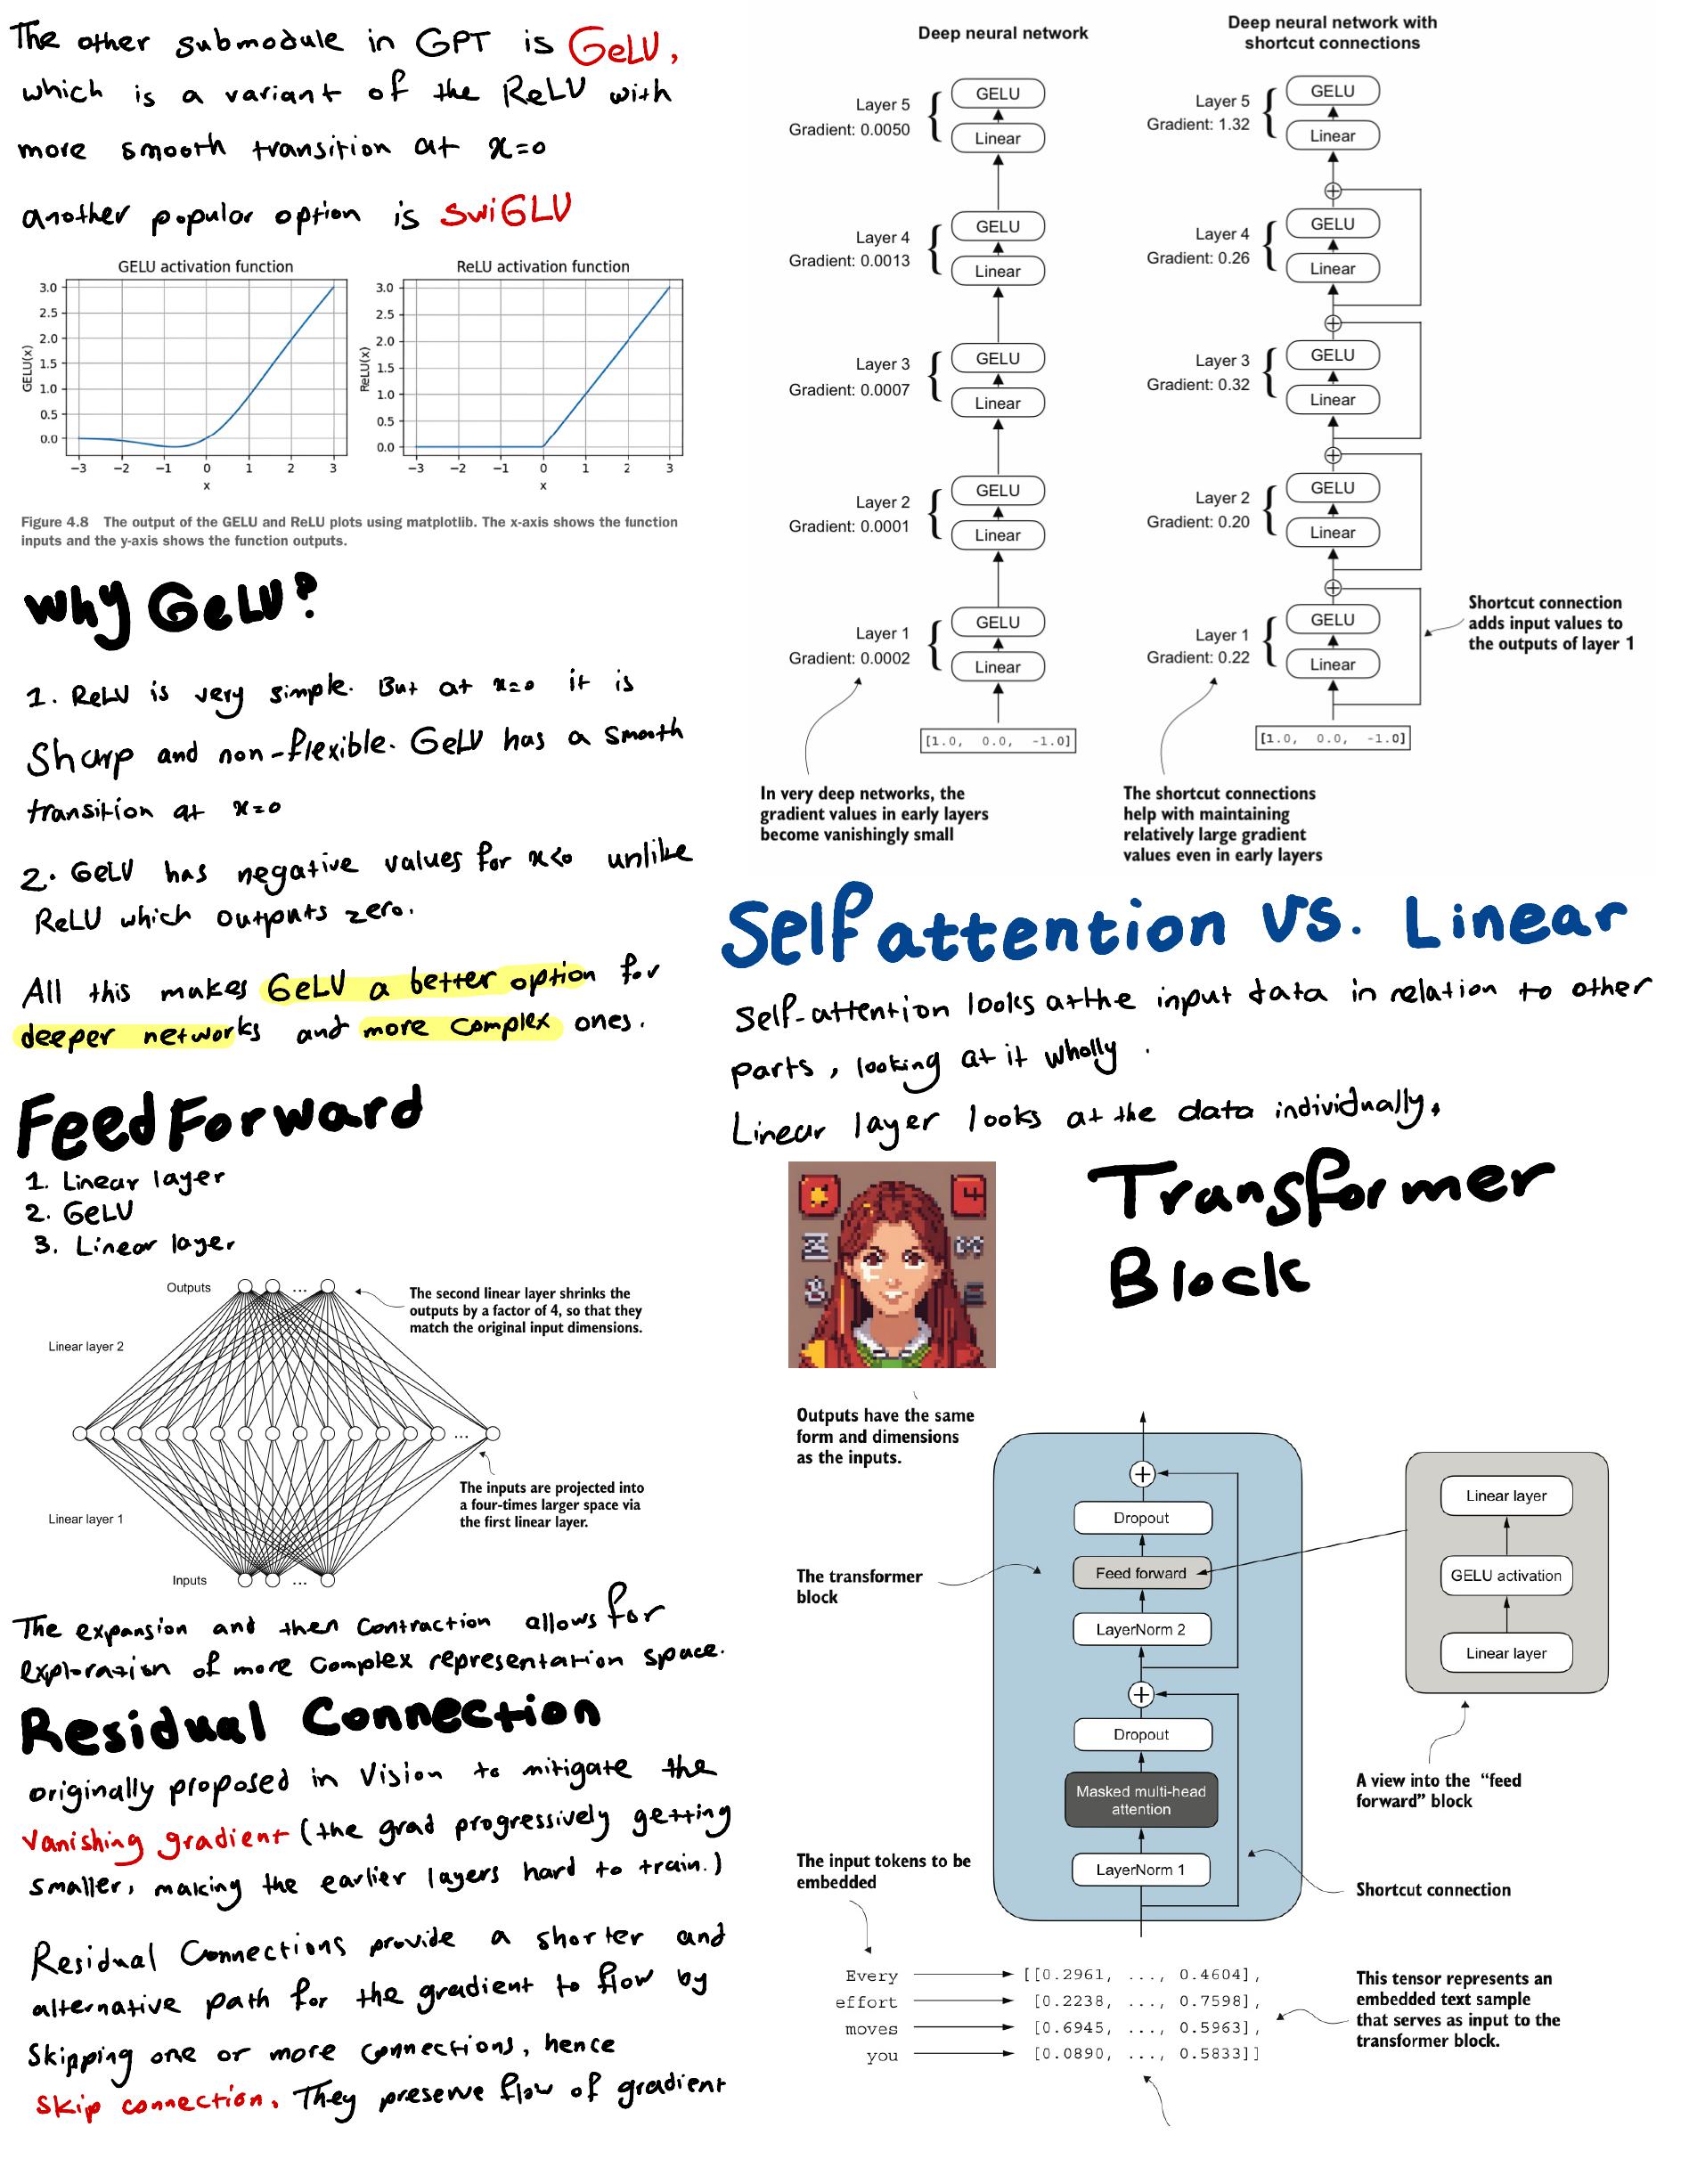 The other submodule in GPT is GeLU,
which is a variant of the ReLU with
more smooth transition at x=0
another popular option is SwiGLU
GELU activation function
3.0
2.5
2.0
1.5
1.0
0.5
0.0
GELU(x)
−3 −2 −1 0 1 2 3
x
ReLU activation function
3.0
2.5
2.0
1.5
1.0
0.5
0.0
ReLU(x)
−3 −2 −1 0 1 2 3
x
Figure 4.8 The output of the GELU and ReLU plots using matplotlib. The x-axis shows the function
inputs and the y-axis shows the function outputs.
Why GeLU?
1. ReLU is very simple. But at x=0 it is
Sharp and non-flexible. GeLU has a smooth
transition at x=0
2. GeLU has negative values for x<0 unlike
ReLU which outputs zero.
All this makes GeLU a better option for
deeper networks and more complex ones.
FeedForward
1. Linear layer
2. GeLU
3. Linear layer
Outputs
...
The second linear layer shrinks the
outputs by a factor of 4, so that they
match the original input dimensions.
Linear layer 2
...
The inputs are projected into
a four-times larger space via
the first linear layer.
Linear layer 1
Inputs
...
The expansion and then contraction allows for
exploration of more complex representation space.
Residual Connection
originally proposed in Vision to mitigate the
Vanishing gradient (the grad progressively getting
smaller, making the earlier layers hard to train.)
Residual Connections provide a shorter and
alternative path for the gradient to flow by
Skipping one or more connections, hence
Skip connection. They preserve flow of gradient
Deep neural network
Layer 5
Gradient: 0.0050
GELU
Linear
Layer 4
Gradient: 0.0013
GELU
Linear
Layer 3
Gradient: 0.0007
GELU
Linear
Layer 2
Gradient: 0.0001
GELU
Linear
Layer 1
Gradient: 0.0002
GELU
Linear
[1.0, 0.0, -1.0]
In very deep networks, the
gradient values in early layers
become vanishingly small
Deep neural network with
shortcut connections
Layer 5
Gradient: 1.32
GELU
Linear
Layer 4
Gradient: 0.26
GELU
Linear
Layer 3
Gradient: 0.32
GELU
Linear
Layer 2
Gradient: 0.20
GELU
Linear
Layer 1
Gradient: 0.22
GELU
Linear
[1.0, 0.0, -1.0]
Shortcut connection
adds input values to
the outputs of layer 1
The shortcut connections
help with maintaining
relatively large gradient
values even in early layers
Self attention vs. Linear
Self-attention looks at the input data in relation to other
parts, looking at it wholly.
Linear layer looks at the data individually.
Transformer
Block
Outputs have the same
form and dimensions
as the inputs.
The transformer
block
Dropout
Feed forward
LayerNorm 2
Dropout
Masked multi-head
attention
LayerNorm 1
Linear layer
GELU activation
Linear layer
A view into the “feed
forward” block
Shortcut connection
The input tokens to be
embedded
Every [[0.2961, ..., 0.4604],
effort [0.2238, ..., 0.7598],
moves [0.6945, ..., 0.5963],
you [0.0890, ..., 0.5833]]
This tensor represents an
embedded text sample
that serves as input to the
transformer block.